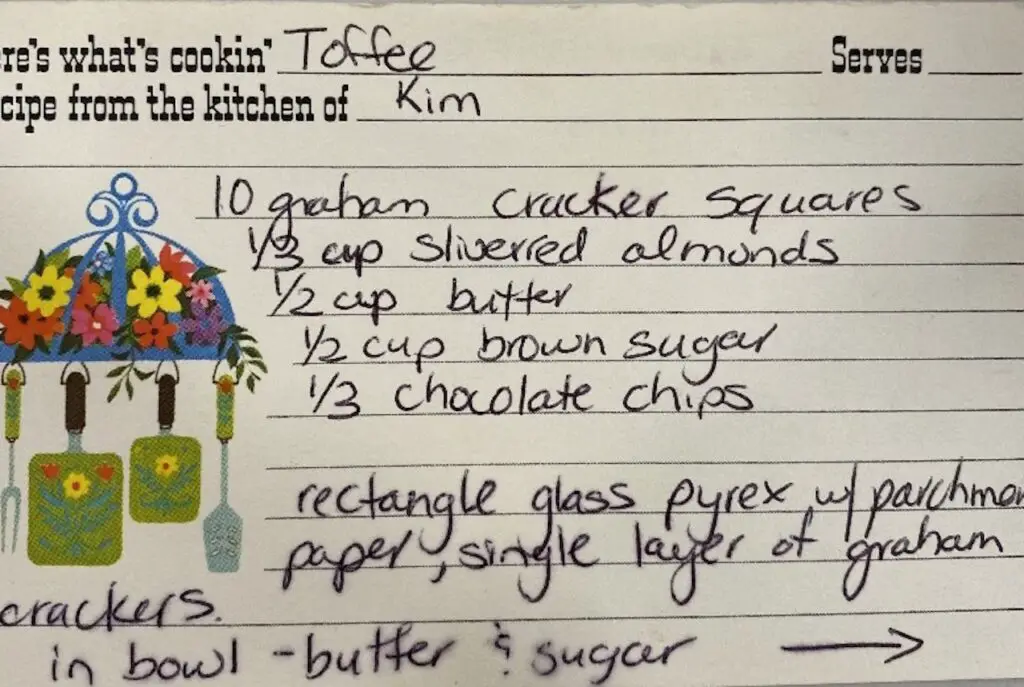 re's what's cookin' Toffee Serves
cipe from the kitchen of Kim
10 graham cracker squares
1/3 cup sliverred almonds
1/2 cup butter
1/2 cup brown sugar
1/3 chocolate chips
rectangle glass pyrex w/ parchmen
paper, single layer of graham
crackers.
in bowl - butter & sugar →